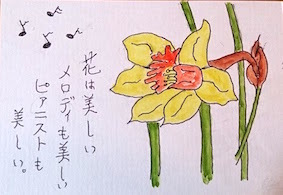 花は美しい
メロディも美しい
ピアニストも
美しい。